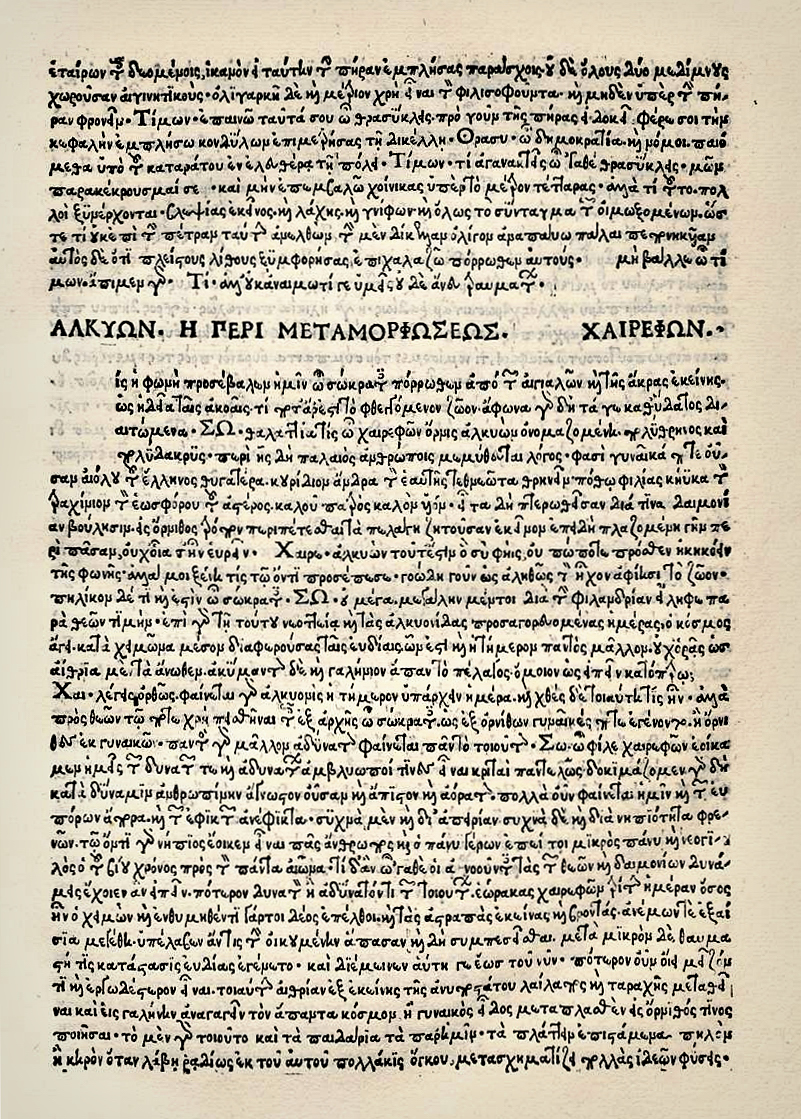 ἑταίρων τοῖς δεομένοις, ἱκανὸν εἰ ταύτην τὴν πήραν ἐμπλήσας παράσχοις. οὐδὲ ὅλους δύο μεδίμνους
χωροῦσαν αἰγινητικούς. ὀλιγαρκῆ δὲ καὶ μέτριον χρὴ εἶναι τὸν φιλοσοφοῦντα. καὶ μηδὲν ὑπὲρ τὴν πή-
ραν φρονεῖν. Τίμων. ἐπαινῶ ταῦτά σου ὦ θρασύκλεις. πρὸ γοῦν τῆς πήρας εἰ δοκεῖ. φέρε σοι τὴν
κεφαλὴν ἐμπλήσω κονδύλων ἐπιμετρήσας τῇ δικέλλῃ. Θρασυ. ὦ δημοκρατία. καὶ νόμοι. παιό
μεθα ὑπὸ τοῦ καταράτου ἐν ἐλευθέρᾳ τῇ πόλει. Τίμων. τί ἀγανακτεῖς ὦ 'γαθὲ θρασύκλεις. μῶν
παρακέκρουσμαί σε. καὶ μὴν ἐπεμβαλῶ χοίνικας ὑπὲρ τὸ μέτρον τέτταρας. ἀλλὰ τί τοῦτο. πολ
λοὶ ξυνέρχονται. βλεψίας ἐκεῖνος. καὶ λάχης. καὶ γνίφων. καὶ ὅλως τὸ σύνταγμα τῶν οἰμωξομένων. ὥς
τε τί οὐκ ἐπὶ τὴν πέτραν ταύτην ἀνελθὼν τὴν μὲν δίκελλαν ὀλίγον ἀναπαύω πάλαι πεπονηκυῖαν
αὐτὸς δὲ ὅτι πλείστους λίθους ξυμφορήσας, ἐπιχαλαζῶ πόρρωθεν αὐτούς. μὴ βάλλε ὦ τί
μων. ἄπιμεν γάρ. Τί. ἀλλ' οὐκ ἀναιμωτί γε ὑμεῖς. οὐδὲ ἄνευ τραυμάτων.
ΑΛΚΥΩΝ. Η ΠΕΡΙ ΜΕΤΑΜΟΡΦΩΣΕΩΣ. ΧΑΙΡΕΦΩΝ.
ίς ἡ φωνὴ προσέβαλεν ἡμῖν ὦ σώκρατες πόρρωθεν ἀπὸ τῶν αἰγιαλῶν καὶ τῆς ἄκρας ἐκείνης.
ὡς ἡδεῖα ταῖς ἀκοαῖς. τί ποτ' ἄρ' ἐστὶ τὸ φθεγγόμενον ζῶον. ἄφωνα γὰρ δὴ τά γε καθ' ὕδατος δι-
αιτώμενα. ΣΩ. θαλαττία τίς ὦ χαιρεφῶν ὄρνις ἀλκυὼν ὀνομαζομένη. πολύθρηνος καὶ
πολύδακρυς. περὶ ἧς δὴ παλαιὸς ἀνθρώποις μεμύθευται λόγος. φασὶ γυναῖκά ποτε οὖ-
σαν αἰόλου τοῦ ἕλληνος θυγατέρα. κουρίδιον ἄνδρα τὸν ἑαυτῆς τεθνεῶτα θρηνεῖν. πόθῳ φιλίας κήυκα τὸν
τραχίνιον τοῦ ἑωσφόρου τοῦ ἀστέρος. καλοῦ πατρὸς καλὸν υἱόν. εἶτα δὴ πτερωθεῖσαν διά τινα δαιμονί
αν βούλησιν. εἰς ὄρνιθος τρόπον περιπέτεσθαι τὰ πελάγη ζητοῦσαν ἐκεῖνον ἐπειδὴ πλαζομένη γῆν πε
ρὶ πᾶσαν, οὐχ οἵα τ' ἦν εὑρεῖν. Χαιρε. ἀλκυὼν τοῦτ' ἐστὶν ὃ σὺ φῄς, οὐ πώποτε πρόσθεν ἠκηκόειν
τῆς φωνῆς. ἀλλά μοι ξένη τις τῷ ὄντι προσέπεσε. γοώδη γοῦν ὡς ἀληθῶς τὸν ἦχον ἀφίησι τὸ ζῶον.
πηλίκον δέ τι καὶ ἔστιν ὦ σώκρατες. ΣΩ. οὐ μέγα. μεγάλην μέντοι διὰ τὴν φιλανδρίαν εἴληφε πα
ρὰ θεῶν τιμήν. ἐπὶ γὰρ τῇ τούτων νεοττίᾳ καὶ τὰς ἀλκυονίδας προσαγορευομένας ἡμέρας, ὁ κόσμος
ἄγει. κατὰ χειμῶνα μέσον διαφερούσας ταῖς εὐδίαις. ὧν ἐστι καὶ ἡ τήμερον παντὸς μᾶλλον. οὐχ ὁρᾷς ὡς
αἴθρια μὲν τὰ ἄνωθεν. ἀκύμαντον δὲ καὶ γαλήνιον ἅπαν τὸ πέλαγος. ὅμοιον ὡς εἰπεῖν κατόπτρῳ;
Χαι. λέγεις ὀρθῶς. φαίνεται γὰρ ἀλκυονὶς ἡ τήμερον ὑπάρχειν ἡμέρα. καὶ χθὲς δὲ τοιαύτη τίς ἦν. ἀλλὰ
πρὸς θεῶν τῷ ποτε χρὴ πεισθῆναι τοῖς ἐξ ἀρχῆς ὦ σώκρατες. ὡς ἐξ ὀρνίθων γυναῖκές ποτε ἐγένοντο. ἢ ὄρνι
θες ἐκ γυναικῶν. παντὸς γὰρ μᾶλλον ἀδύνατον φαίνεται πᾶν τὸ τοιοῦτον. Σω. ὦ φίλε χαιρεφῶν ἐοίκα
μεν ἡμεῖς τῶν δυνατῶν τε καὶ ἀδυνάτων ἀμβλυωποί τινες εἶναι κριταὶ παντελῶς. δοκιμάζομεν γὰρ δὴ
κατὰ δύναμιν ἀνθρωπίνην ἄγνωστον οὖσαν καὶ ἄπιστον καὶ ἀόρατον. πολλὰ οὖν φαίνεται ἡμῖν καὶ τῶν εὐ
πόρων ἄπορα. καὶ τῶν ἐφικτῶν ἀνέφικτα. συχνὰ μὲν καὶ δι' ἀπειρίαν συχνὰ δὲ καὶ διὰ νηπιότητα φρε-
νῶν. τῷ ὄντι γὰρ νήπιος ἔοικεν εἶναι πᾶς ἄνθρωπος καὶ ὁ πάνυ γέρων ἐπεί τοι μικρὸς πάνυ καὶ νεογι-
λὸς ὁ τοῦ βίου χρόνος πρὸς τὸν πάντα αἰῶνα. τί δ' ἂν ὦ 'γαθὲ οἱ ἀγνοοῦντες τὰς τῶν θεῶν καὶ δαιμονίων δυνά-
μεις ἔχοιεν ἂν εἰπεῖν. πότερον δυνατὸν ἢ ἀδύνατόν τι τῶν τοιούτων. ἑώρακας χαιρεφῶν τρίτην ἡμέραν ὅσος
ἦν ὁ χειμὼν καὶ ἐνθυμηθέντι γάρ τοι δέος ἐπέλθοι. καὶ τὰς ἀστραπὰς ἐκείνας καὶ βροντάς. ἀνέμων τε ἐξαί
σια μεγέθη. ὑπέλαβεν ἄν τις τὴν οἰκουμένην ἅπασαν καὶ δὴ συμπεσεῖσθαι. μετὰ μικρὸν δὲ θαυμα
στή τις κατάστασις εὐδίας ἐγένετο. καὶ διέμεινεν αὕτη γε ἕως τοῦ νῦν. πότερον οὖν οἴει μεῖζόν
τι καὶ ἐργωδέστερον εἶναι. τοιαύτην αἰθρίαν ἐξ ἐκείνης τῆς ἀνυποστάτου λαίλαπος καὶ ταραχῆς μεταθεῖ
ναι καὶ εἰς γαλήνην ἀναγαγεῖν τὸν ἅπαντα κόσμον. ἢ γυναικὸς εἶδος μεταπλασθὲν εἰς ὄρνιθός τινος
ποιῆσαι. τὸ μὲν γὰρ τοιοῦτο καὶ τὰ παιδάρια τὰ παρ' ἡμῖν. τὰ πλάττειν ἐπιστάμενα. πηλὸν
ἢ κηρὸν ὅταν λάβῃ ῥᾳδίως ἐκ τοῦ αὐτοῦ πολλάκις ὄγκου. μετασχηματίζει πολλὰς ἰδεῶν φύσεις.